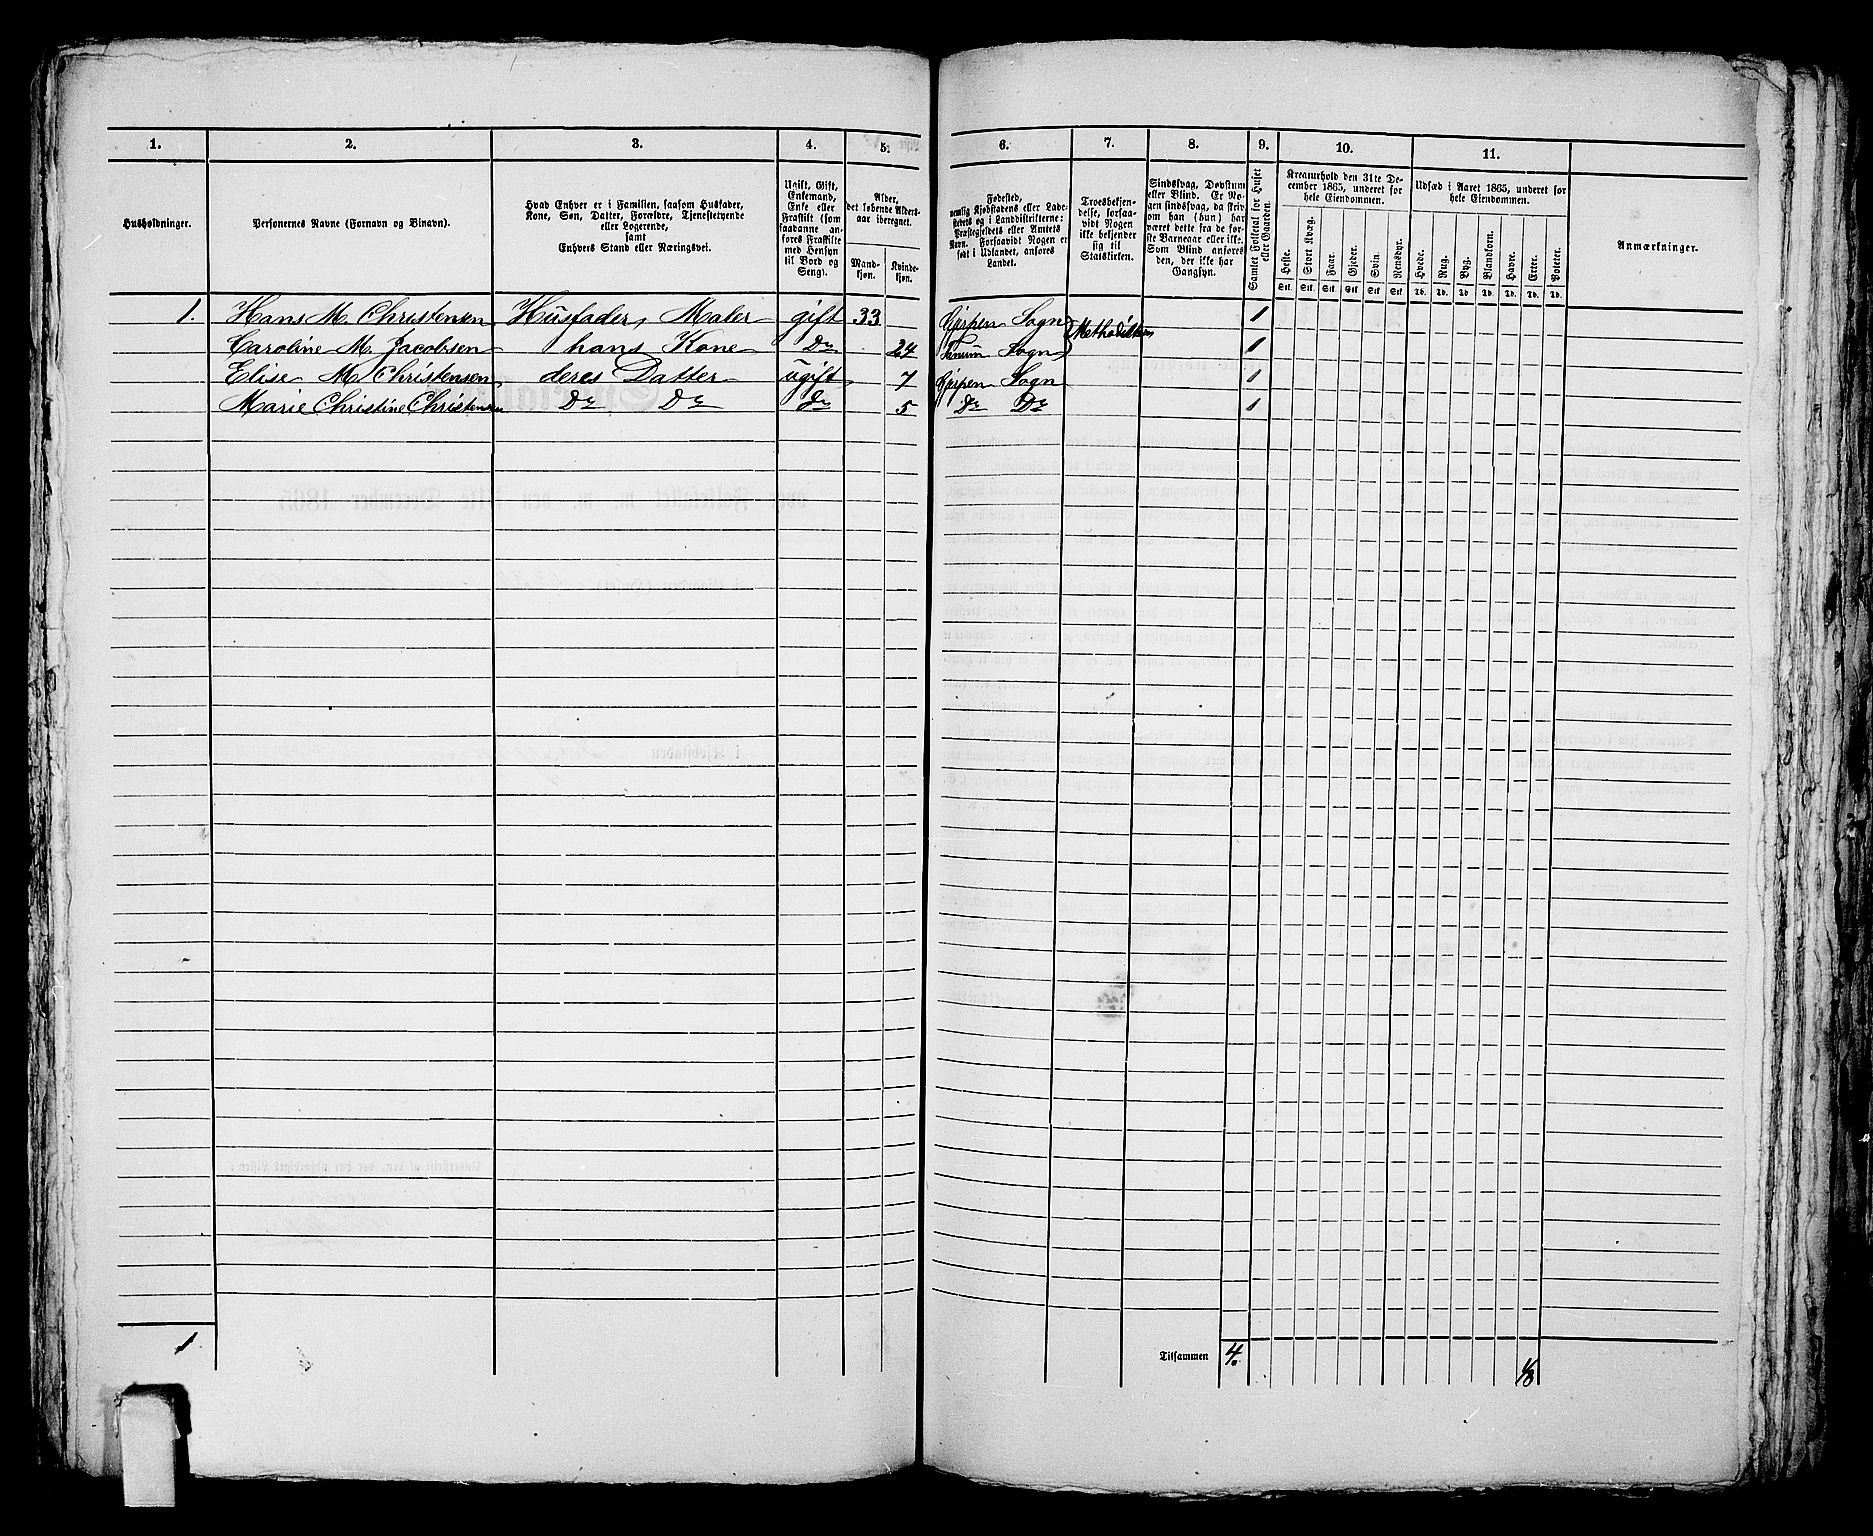 1. 2. 3. 4. 5. 6. 7. 8. 9. 10. 11.
Husholdninger.
Personernes Navne (Fornavn og Binavn).
Hvad Enhver er i Familien, saasom Husfader,
Kone, Søn, Datter, Forældre, Tjenestetyende
eller Logerende,
samt
Enhvers Stand eller Næringsvei.
Ugift, Gift,
Enkemand,
Enke eller
Fraskilt (som
saadanne an-
føres Fraskilte
med Hensyn
til Bord og
Seng).
Alder,
det løbende Alders-
aar iberegnet.
Mand-
kjøn.
Kvinde-
kjøn.
Fødested,
nemlig Kjøbstadens eller Lade-
stedets og i Landdistrikterne:
Præstegjeldets eller Amtets
Navn. Forsaavidt Nogen er
født i Udlandet, anføres
Landet.
Troesbekjen-
delse, forsaa-
vidt Nogen
ikke bekjender
sig til
Statskirken.
Sindssvag, Døvstum
eller Blind. Er No-
gen sindssvag, da skriv
om han (hun) har
været dette fra de før-
ste Barneaar eller ikke.
Som Blind anføres
den, der ikke har
Gangsyn.
Samlet Folketal for Huset
eller Gaarden.
Kreaturhold den 31te De-
cember 1865, underet for
hele Eiendommen.
Heste. Stort Kvæg. Faar. Gjeder. Svin. Rensdyr.
Stk. Stk. Stk. Stk. Stk. Stk.
Udsæd i Aaret 1865, underet for
hele Eiendommen.
Hvede. Rug. Byg. Blandkorn. Havre. Erter. Poteter.
Td. Td. Td. Td. Td. Td. Td.
Anmærkninger.
1. Hans M. Christensen Husfader, Maler gift 33 Gjerpen Sogn Methodist 1
Caroline M. Jacobsen hans Kone Do 24 Sogn 1
Elise M. Christensen deres Datter ugift 7 Gjerpen Sogn 1
Marie Christine Christensen Do Do Do 5 Do Do 1
1 Tilsammen 4.